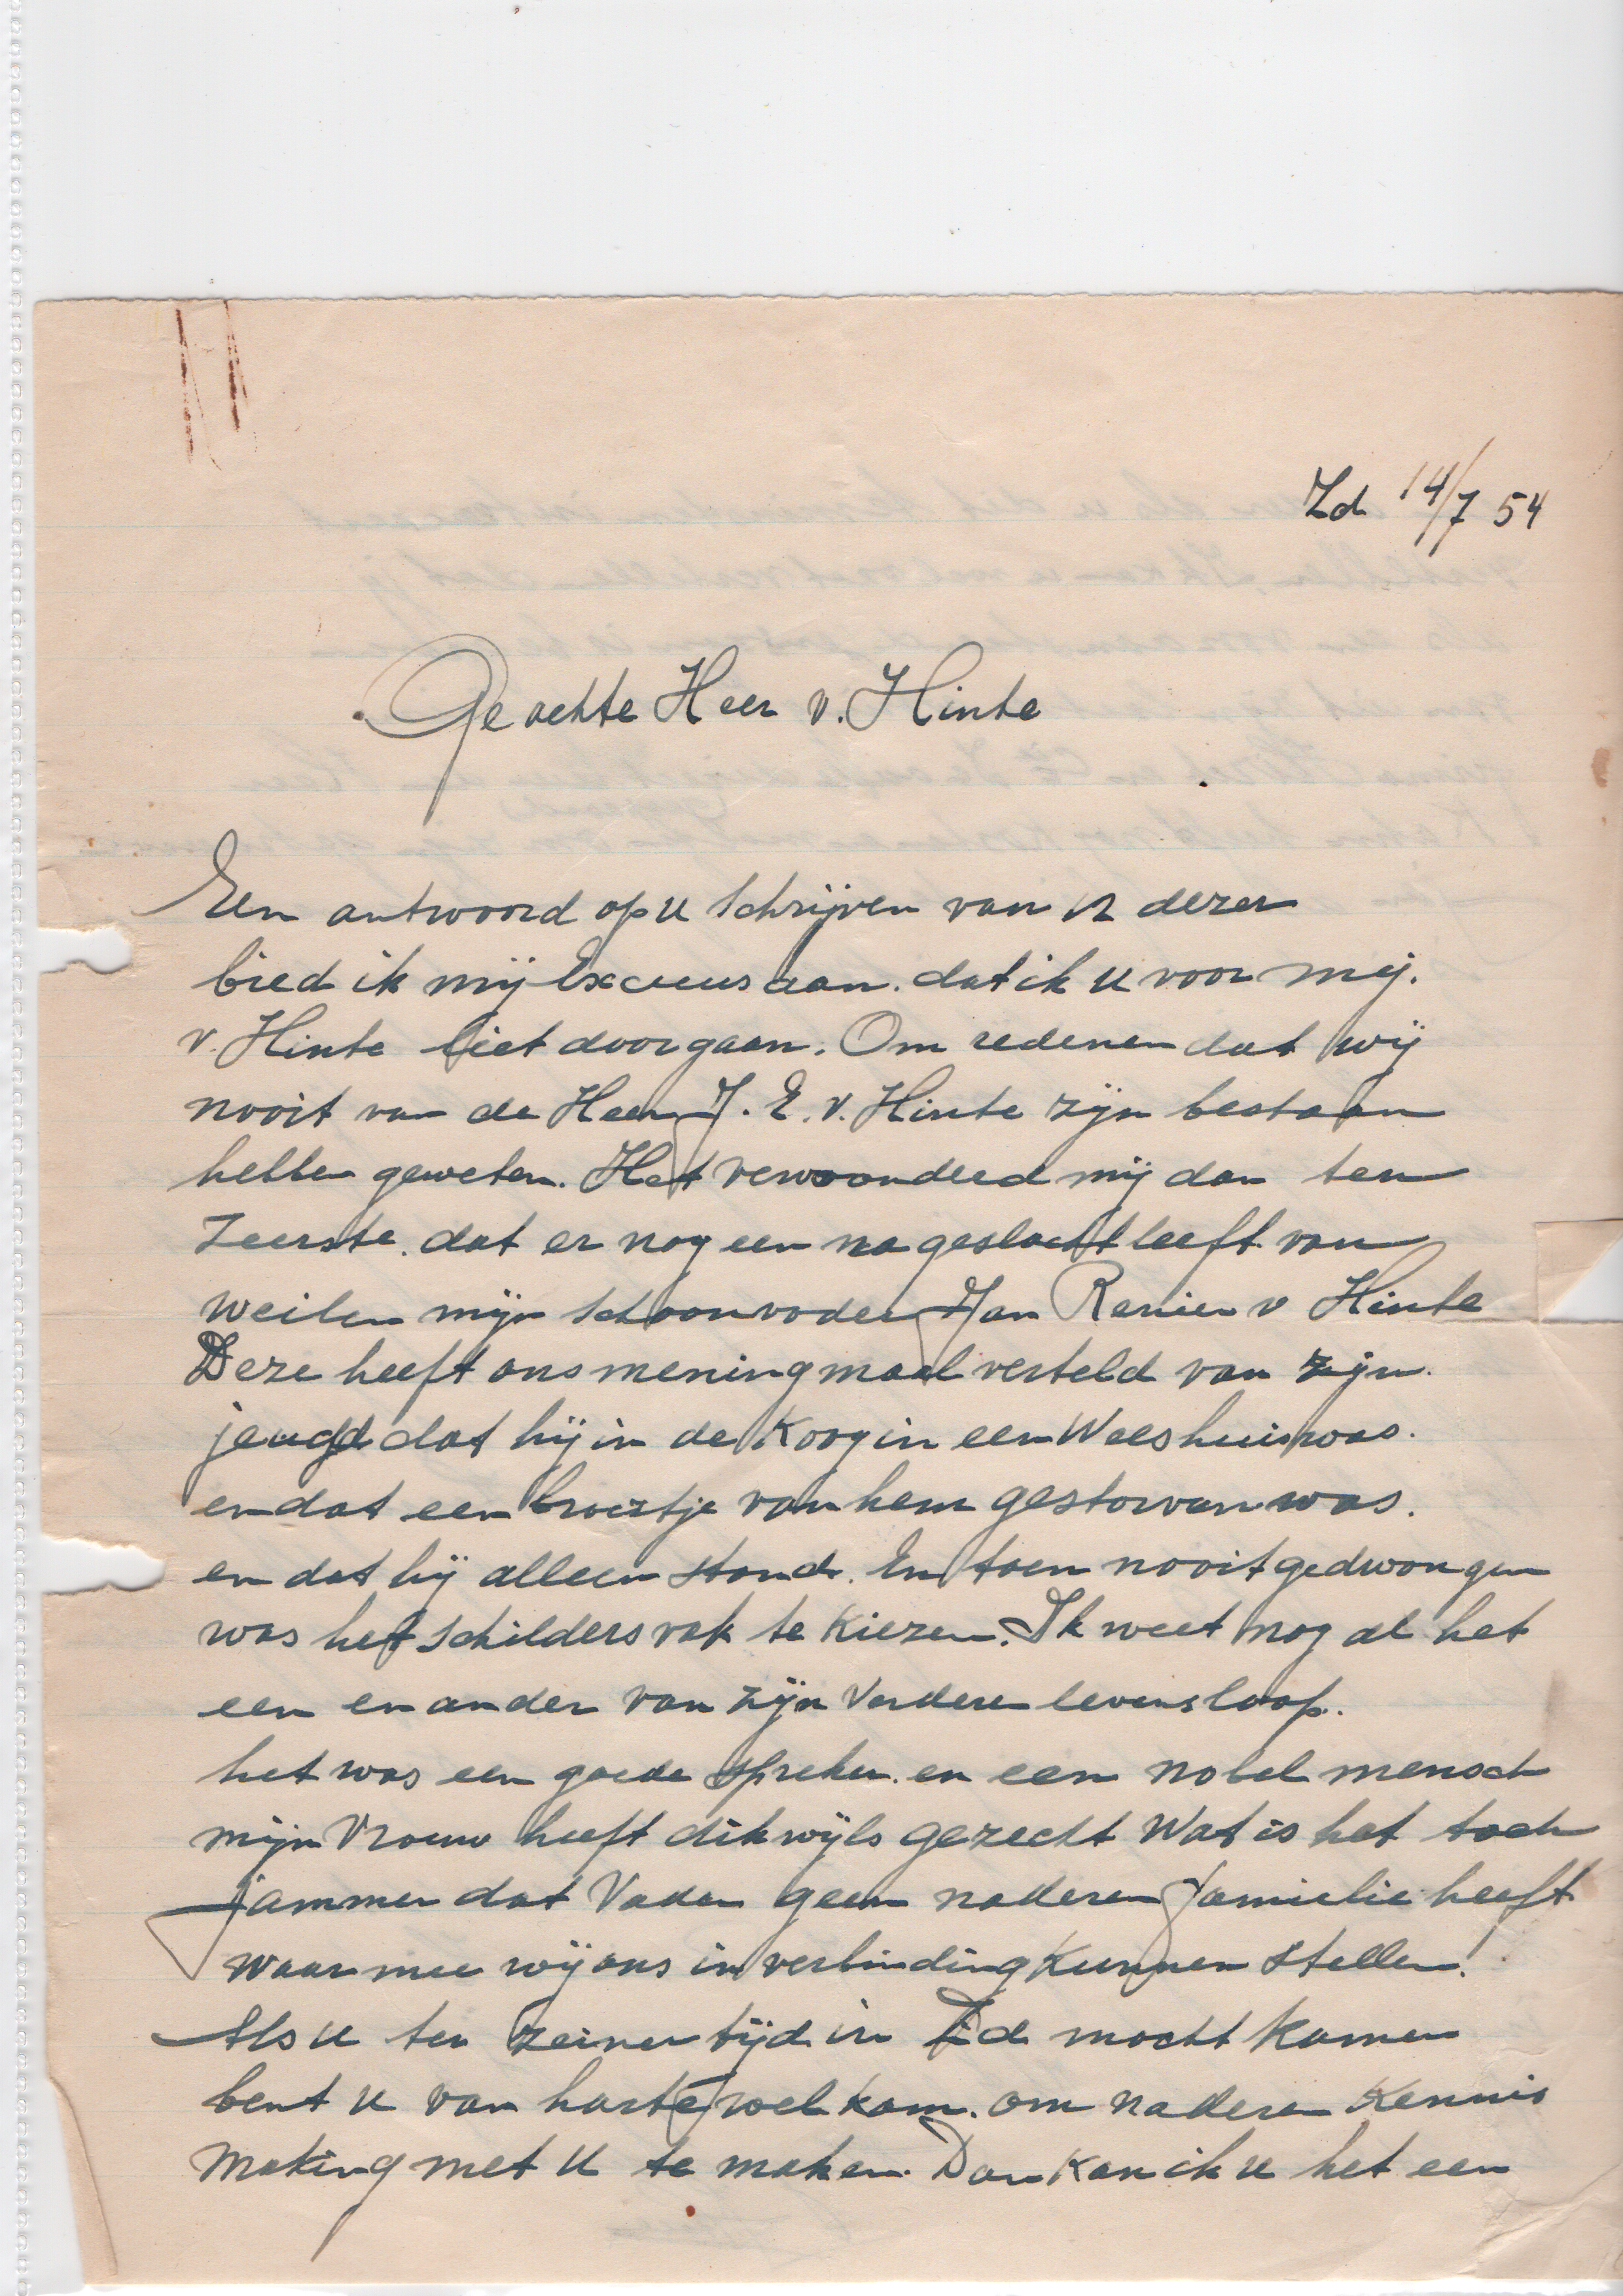 Zd 14/7 54
Geachte Heer v. Hinte
Een antwoord op u schrijven van 12 dezer
bied ik mij Excuus aan. dat ik u voor mej.
v. Hinte liet doorgaan. Om redenen dat wij
nooit van de Heer J. E. v. Hinte zijn bestaan
hebben geweten. Het verwonderd mij dan ten
Zeerste. dat er nog een na geslacht leeft van
weilen mijn schoonvader Jan Renier v Hinte
Deze heeft ons meningmaal verteld van zijn.
jeugd dat hij in de Koog in een Weeshuis was.
en dat een broertje van hem gestorven was.
en dat hij alleen stond. En toen nooitgedwongen
was het schilders vak te Kiezen. Ik weet nog al het
een en ander van zijn verdere levensloop.
het was een goede spreker. en een nobel mensch
mijn Vrouw heeft dikwijls gezecht Wat is het toch
jammer dat Vader geen naderen familie heeft
waar mee wij ons in verbinding Kunnen stellen!
Als u ten zeiner tijd in Zd mocht Komen
bent u van harte wel kom. om nadere Kennis
making met u te maken. Dan Kan ik u het een